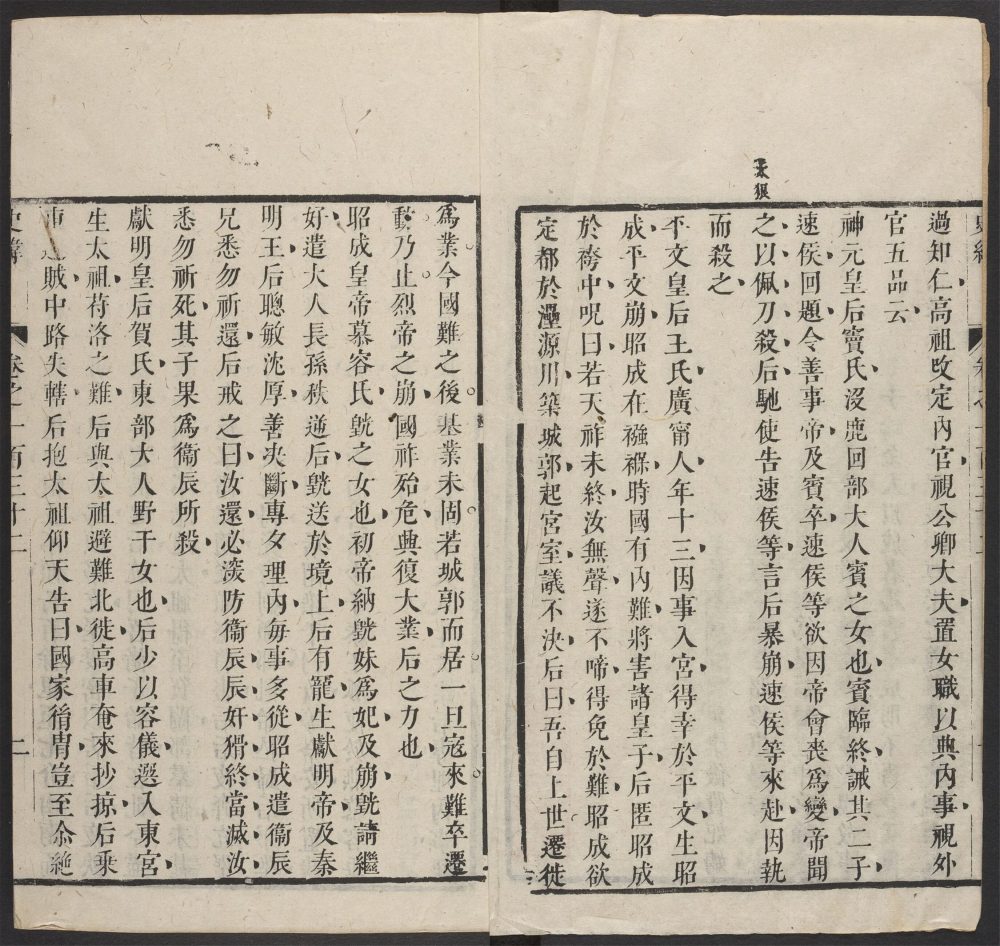 太狠
過知仁高祖改定內官視公卿大夫置女職以典內事視外
官五品云
神元皇后竇氏沒鹿回部大人賓之女也賓臨終誡其二子
速侯回題令善事帝及賓卒速侯等欲因帝會喪爲變帝聞
之以佩刀殺后馳使告速侯等言后暴崩速侯等來赴因執
而殺之
平文皇后王氏廣甯人年十三因事入宮得幸於平文生昭
成平文崩昭成在襁褓時國有內難將害諸皇子后匿昭成
於袴中呪曰若天祚未終汝無聲遂不啼得免於難昭成欲
定都於㶟源川築城郭起宮室議不決后曰吾自上世遷徙
爲業今國難之後基業未固若城郭而居一旦寇來難卒遷
動乃止烈帝之崩國祚殆危興復大業后之力也
昭成皇帝慕容氏皝之女也初帝納皝妹爲妃及崩皝請繼
好遣大人長孫秩逆后皝送於境上后有寵生獻明帝及秦
明王后聰敏沈厚善決斷專夕理內每事多從昭成遣衞辰
兄悉勿祈還后戒之曰汝還必深防衞辰辰奸猾終當滅汝
悉勿祈死其子果爲衞辰所殺
獻明皇后賀氏東部大人野干女也后少以容儀選入東宮
生太祖苻洛之難后與太祖避難北徙高車奄來抄掠后乘
車 賊中路失轄后抱太祖仰天告曰國家胤胄豈至尒絶
史緯 卷之一百三十二 二